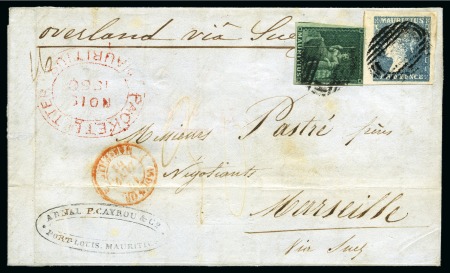 overland via Suez
MAURITIUS
TWO PENCE
PACKET LETTER
MAURITIUS
NO 15
Messieurs Pastré frères
Négotiants
Marseille
Via Suez
ARNAL P. CAYROU & Cº
PORT-LOUIS, MAURITIUS